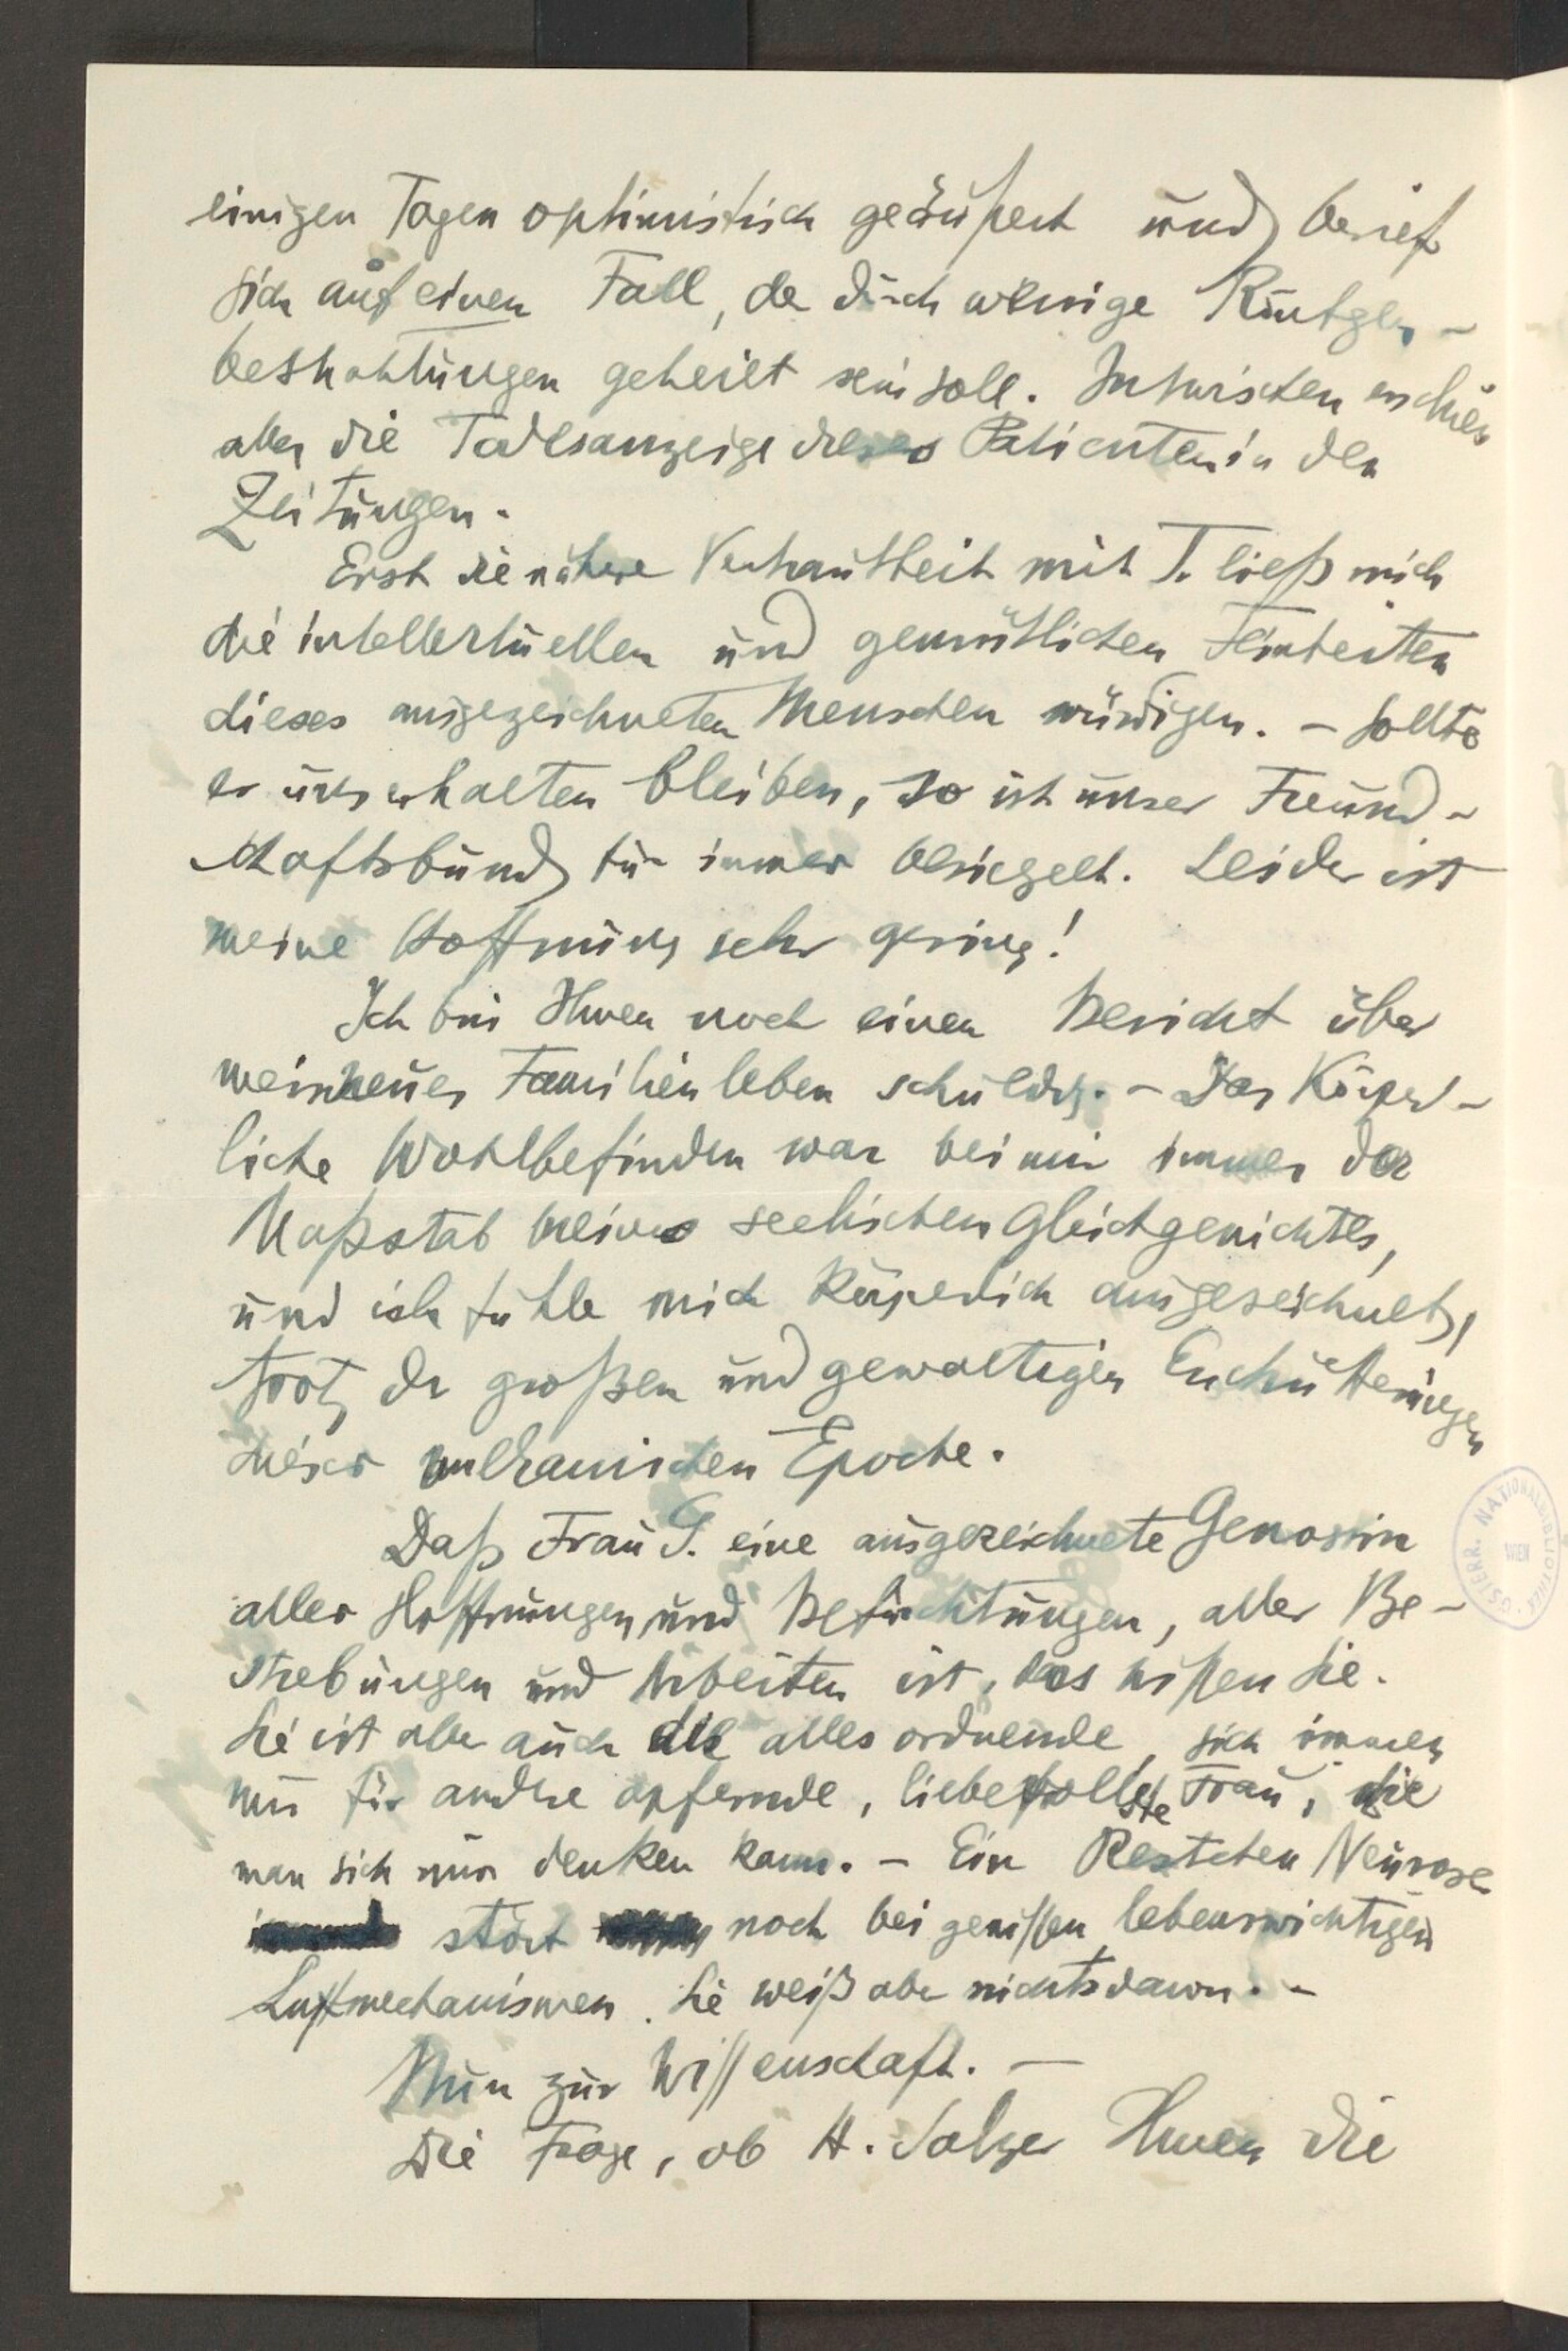 einigen Tagen optimistisch geäußert und berief
sich auf einen Fall, der durch wenige Röntgen-
bestrahlungen geheilt sein soll. Inzwischen erschien
aber die Todesanzeige dieses Patienten in den
Zeitungen.
Erst die nähere Vertrautheit mit T. ließ mich
die intellektuellen und gemütlichen Feinheiten
dieses ausgezeichneten Menschen würdigen. – Sollte
er uns erhalten bleiben, so ist unser Freund-
schaftsbund für immer besiegelt. Leider ist
meine Hoffnung sehr gering!
Ich bin Ihnen noch einen Bericht über
mein neues Familienleben schuldig. – Das Körper-
liche Wohlbefinden war bei mir immer der
Maßstab meines seelischen Gleichgewichtes,
und ich fühle mich körperlich ausgezeichnet,
trotz der großen und gewaltigen Erschütterungen
dieser vulkanischen Epoche.
Daß Frau G. eine ausgezeichnete Genossin
aller Hoffnungen und Befürchtungen, aller Be-
strebungen und Arbeiten ist, das wißen Sie.
Sie ist aber auch die alles ordnende, sich immer
nur für andere opfernde, liebevollste Frau, die
man sich nur denken kann. – Ein Restchen Neurose
stört noch bei gewissen lebenswichtigen
Lustmechanismen. Sie weiß aber nichts davon. –
Nun zur Wissenschaft. —
Die Frage, ob H. Ihnen die
ÖSTERR. NATIONALBIBLIOTHEK WIEN